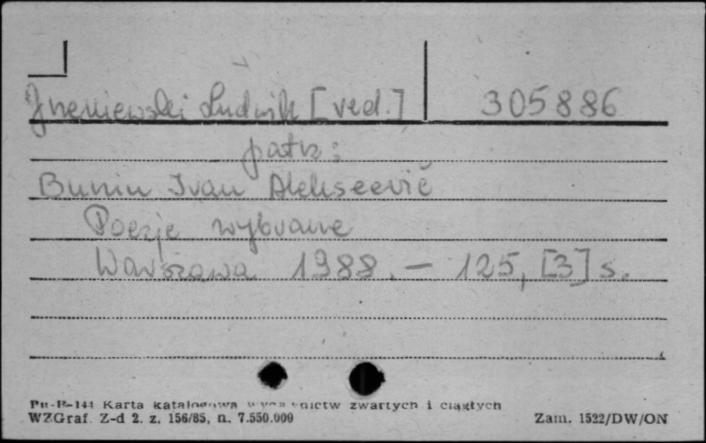 Jneniewski Ludwik [red.] 305886
patrz:
Bunin Ivan Alekseevič
Poezje wybrane
Warszawa 1988. – 125, [3] s.
Pu-B-144 Karta katalogowa wydawnictw zwartych i ciągłych
WZGraf. Z-d 2. z. 156/85, n. 7.550.000 Zam. 1522/DW/ON